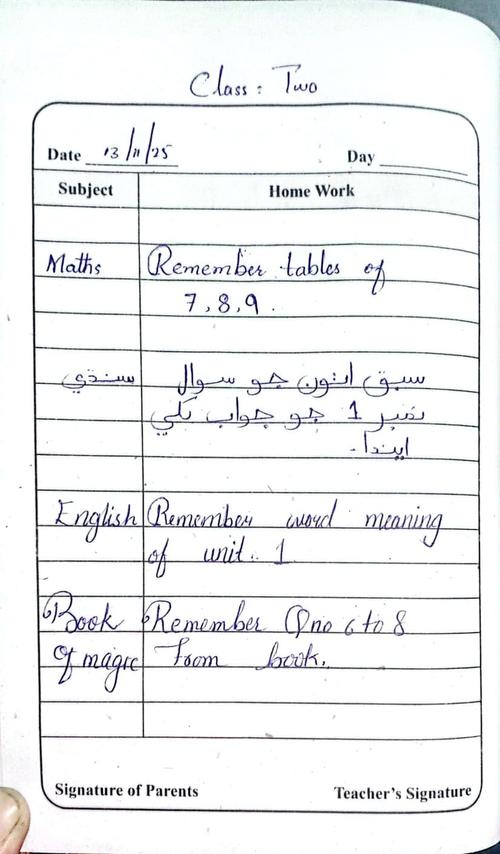 Class : Two
Date 13/11/25 Day
Subject Home Work
Maths Remember tables of
7, 8, 9.
سنڌي سبق اٺون جو سوال
نمبر 1 جو جواب لکي
ايندا.
English Remember word meaning
of unit. 1
Book Remember Q no 6 to 8
Of magic From book.
Signature of Parents Teacher's Signature